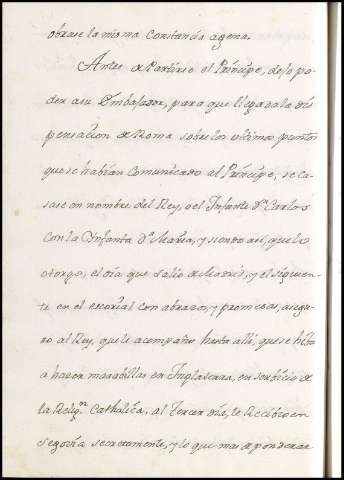 obrase la misma Constancia agena.
Antes de Partirse el Príncipe, dejo po-
der a su Embajador, para que llegada la dis
pensacion de Roma sobre los ultimos puntos
que se habían Comunicado al Príncipe, se ca-
sase en nombre del Rey, o el Infante Dn. Carlos
con la Infanta Da. Maria, y siendo así, que lo
otorgo, el dia que salio de Madrid, y el siguien-
te en el escorial con abrazos, y promesas, asegu
ro al Rey, que le acompaño hasta allí, que se hiba
a hacer marabillas en Inglaterra, en serbicio de
la Relign. Catholica, al Tercer dia, le Recibio en
Segovia secretamente, y lo que mas es ponderar